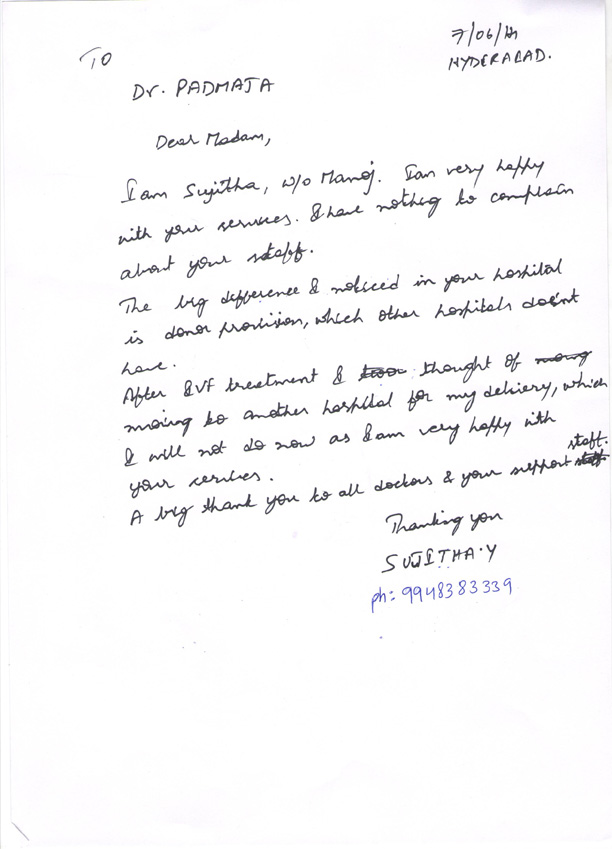 7/06/
HYDERABAD.
TO
Dr. PADMAJA
Dear Madam,
I am Sujitha, w/o Manoj. I am very happy
with your services. I have nothing to complain
about your staff.
The big difference I noticed in your hospital
is donor provision, which other hospitals doesn't
have.
After IVF treatment I thought of
moving to another hospital for my delivery, which
I will not do now as I am very happy with
your services.
A big thank you to all doctors & your support staff.
Thanking you
SUJITHA.Y
ph: 9948383339